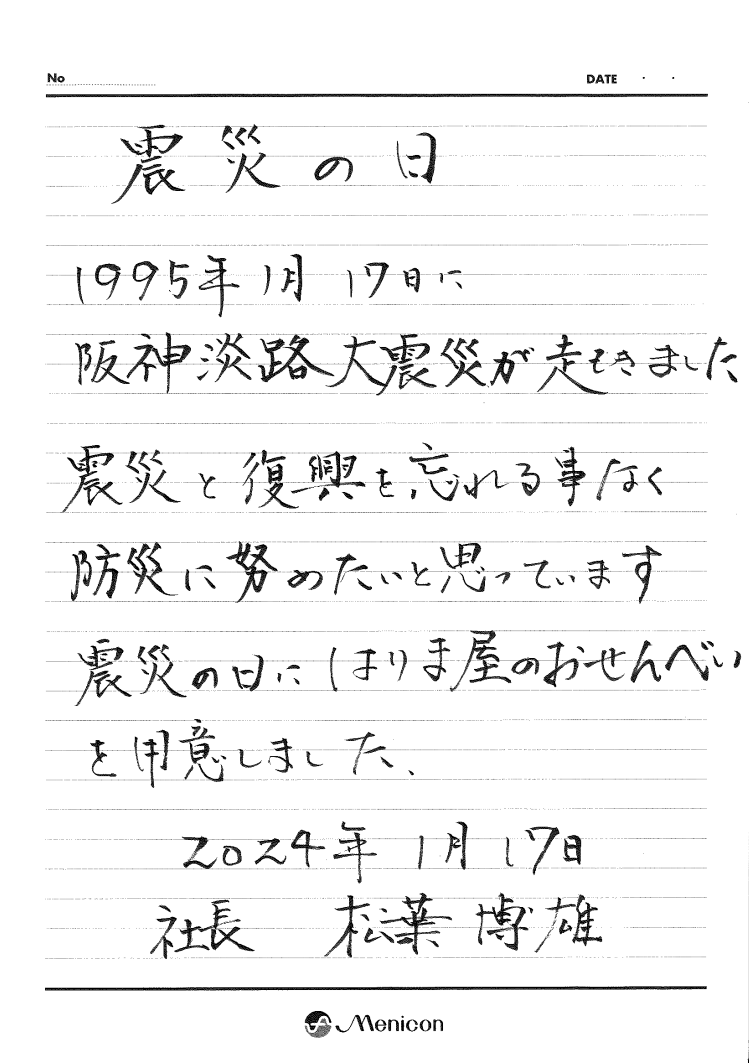 No
DATE ・ ・
震災の日
1995年1月17日に
阪神淡路大震災が起きました
震災と復興を忘れる事なく
防災に努めたいと思っています
震災の日にはりま屋のおせんべい
を用意しました、
2024年1月17日
社長 松葉博雄
Menicon